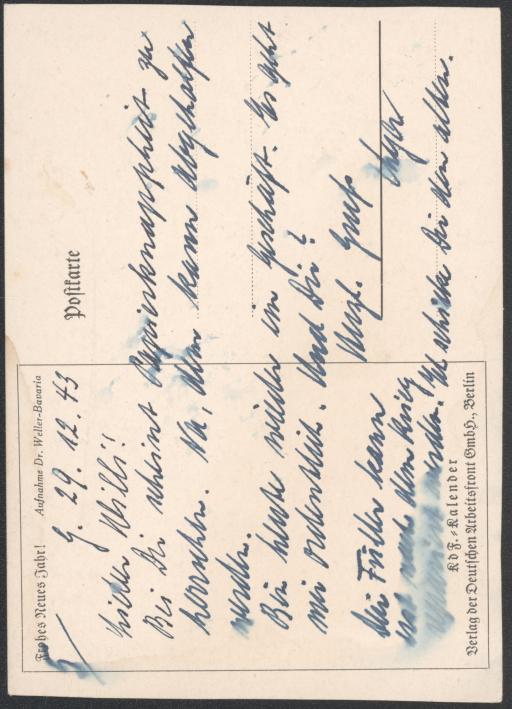 Frohes Neues Jahr! Aufnahme Dr. Weller-Bavaria
Postkarte
29. 12. 43
Lieber Willi!
Bei Dir scheint Papierknappheit zu
herrschen. Na, dem kann abgeholfen
werden.
Bin heute wieder im Geschäft. Es geht
mir ordentlich. Und Dir?
Herzl. Gruß
Der Füller kann
nach dem Krieg
werden. Ich schicke Dir den alten.
KdF.-Kalender
Verlag der Deutschen Arbeitsfront GmbH., Berlin